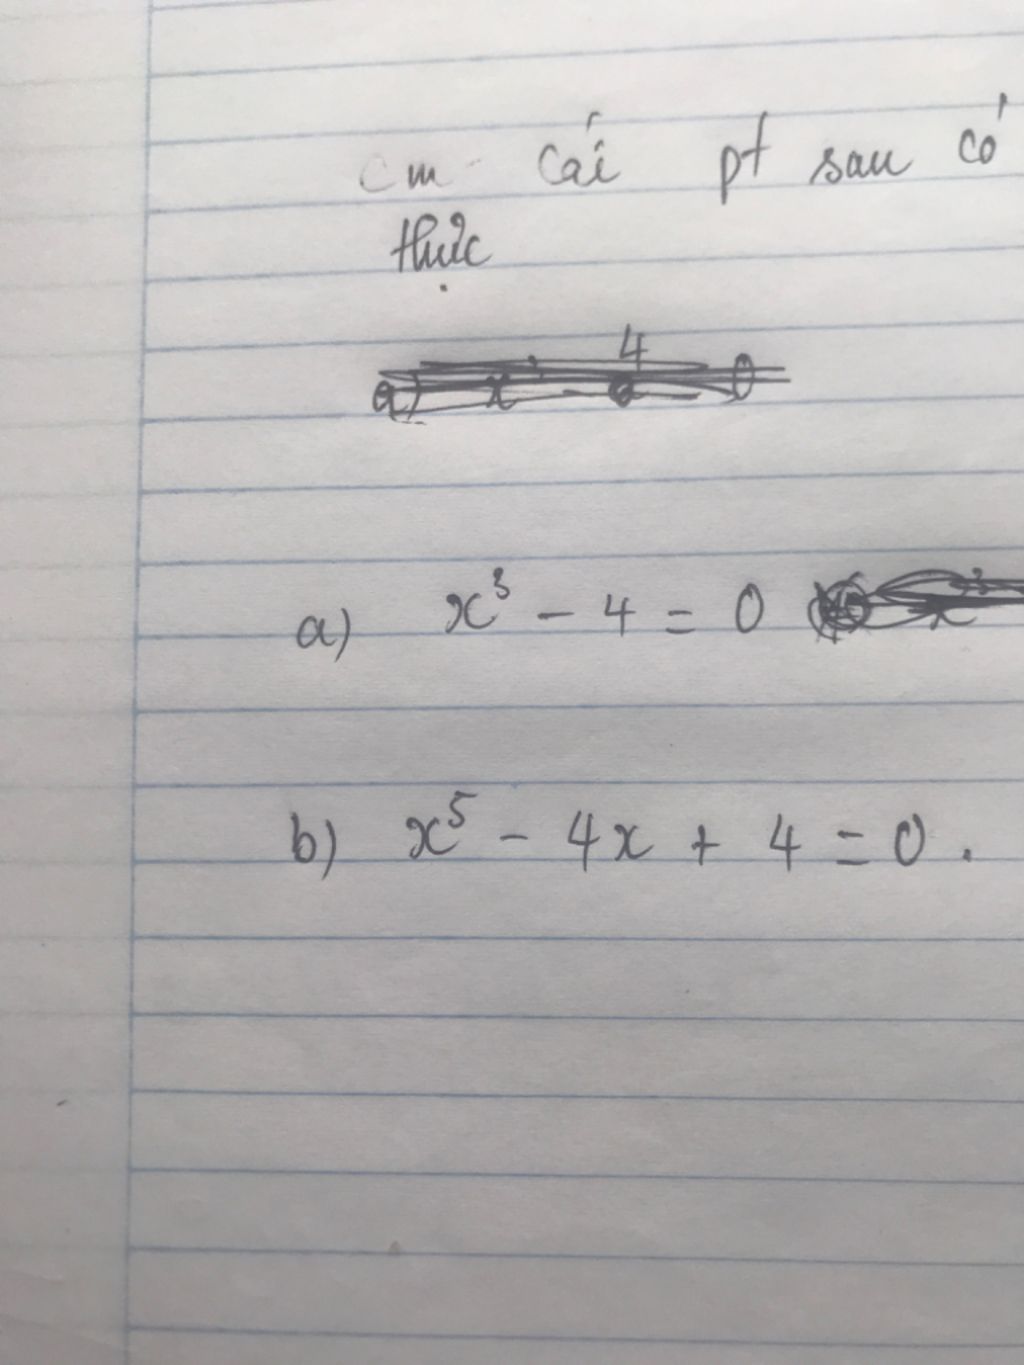 cm cái pt sau có
thực
a) x³ - 4 = 0
b) x⁵ - 4x + 4 = 0.